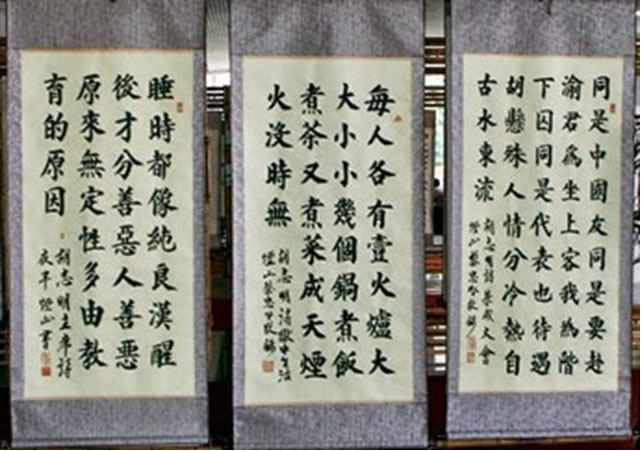 同是中國友同是要赴
渝君為坐上客我為階
下囚同是代表也待遇
胡懸殊人情分冷熱自
古水東流
胡志明詩
每人各有壹火爐大
大小小幾個鍋煮飯
煮茶又煮菜成天煙
火沒時無
胡志明詩
睡時都像純良漢醒
後才分善惡人善惡
原來無定性多由教
育的原因
胡志明主席詩
夜半